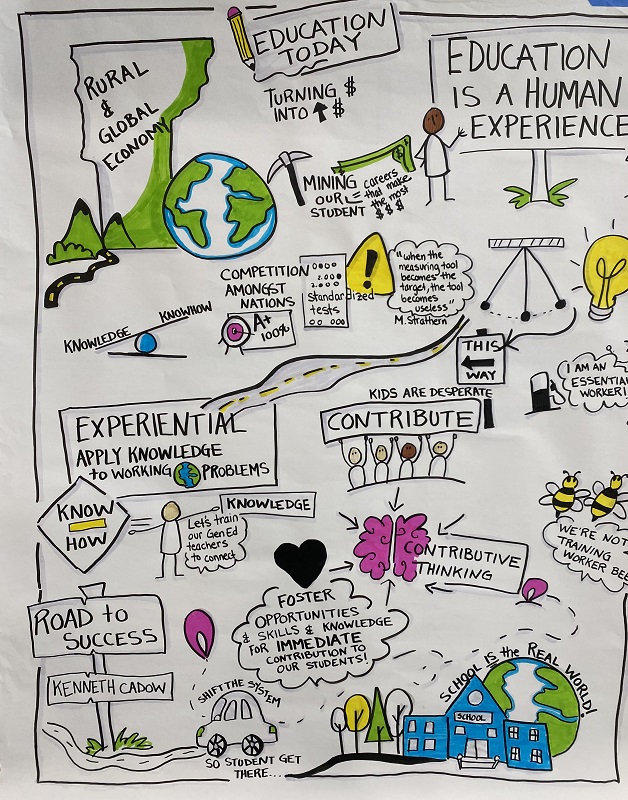 EDUCATION
TODAY
RURAL
&
GLOBAL
ECONOMY
TURNING $
INTO ↑ $
EDUCATION
IS A HUMAN
EXPERIENCE
MINING
OUR
STUDENT
careers
that make
the most
$$$
$
COMPETITION
AMONGST
NATIONS
A+
100%
Standardized
tests
!
"when the
measuring tool
becomes the
target, the tool
becomes
useless"
M. Strathern
KNOWLEDGE
KNOWHOW
THIS
WAY
I AM AN
ESSENTIAL
WORKER!
EXPERIENTIAL
APPLY KNOWLEDGE
to WORKING PROBLEMS
KIDS ARE DESPERATE
CONTRIBUTE
KNOW
HOW
KNOWLEDGE
Let's train
our Gen Ed
teachers
to connect
CONTRIBUTIVE
THINKING
WE'RE NOT
TRAINING
WORKER BEE
FOSTER
OPPORTUNITIES
& SKILLS & KNOWLEDGE
FOR IMMEDIATE
CONTRIBUTION TO
OUR STUDENTS!
ROAD to
SUCCESS
KENNETH CADOW
SHIFT THE SYSTEM
SO STUDENT GET
THERE...
SCHOOL IS the REAL WORLD!
SCHOOL